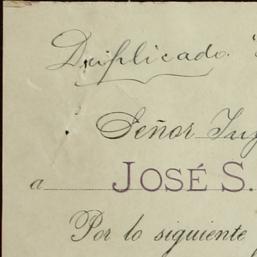 Duplicado.
Señor
a JOSÉ S.
Por lo siguiente